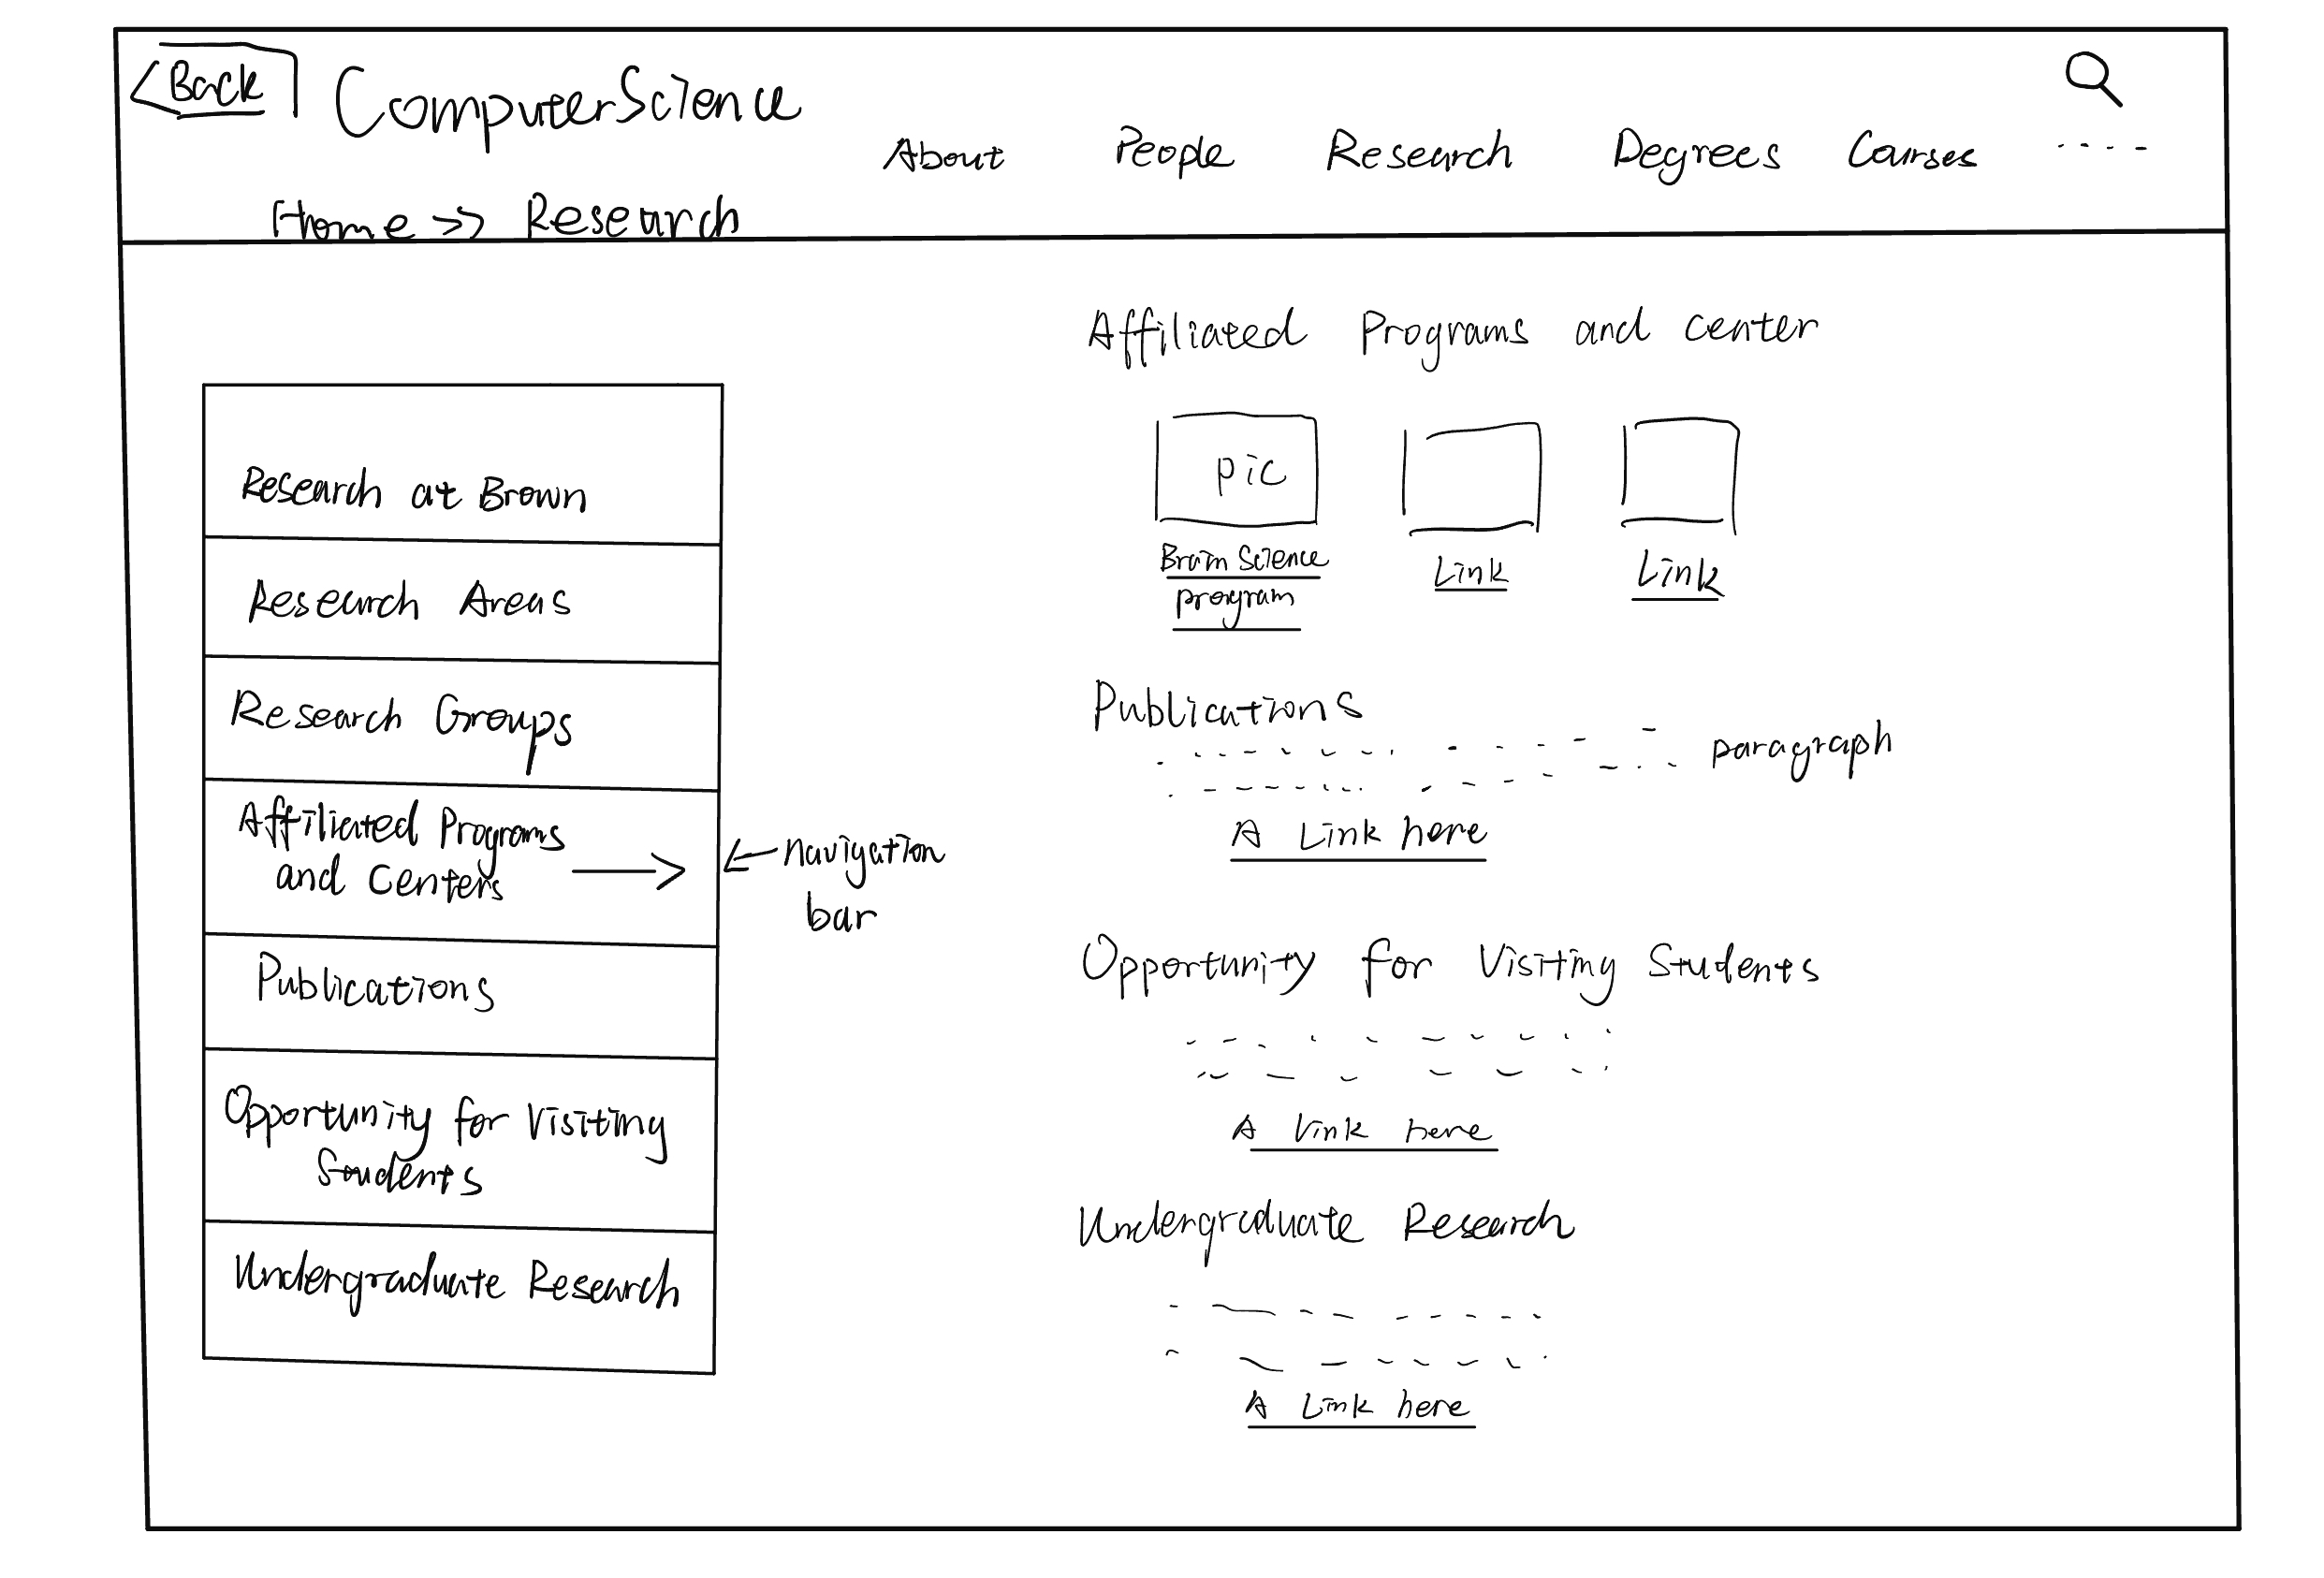 Back
ComputerScience
About People Research Degrees Courses ....
Home >> Research
Research at Brown
Research Areas
Research Groups
Affiliated Programs
and Centers
Publications
Opportunity for Visiting
Students
Undergraduate Research
navigation
bar
Affiliated Programs and center
pic
Brain Science
program
Link
Link
Publications
paragraph
A Link here
Opportunity for Visiting Students
A Link here
Undergraduate Research
A Link here